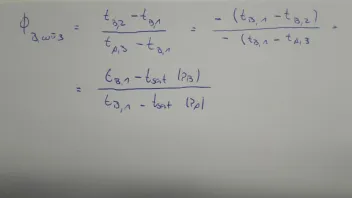 ϕ_B,wü3 = (t_B,2 - t_B,1) / (t_A,3 - t_B,1) = (- (t_B,1 - t_B,2)) / (- (t_B,1 - t_A,3)) =
= (t_B,1 - t_sat (P_B)) / (t_B,1 - t_sat (P_A))